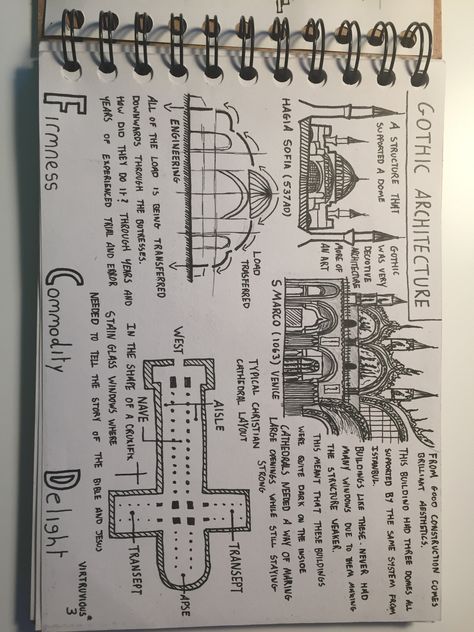 GOTHIC ARCHITECTURE
A STRUCTURE THAT
SUPPORTED A DOME
HAGIA SOFIA (537AD)
GOTHIC
WAS VERY
DECOTIVE
ARCHITECTURE
MORE OF
AN ART
S MARCO (1063) VENICE
FROM GOOD CONSTRUCTION COMES
BRILLIANT AESTHETICS.
THIS BUILDING HAD THREE DOMES ALL
SUPPORTED BY THE SAME SYSTEM FROM
ISTANBUL
BUILDINGS LIKE THESE NEVER HAD
MANY WINDOWS DUE TO THEM MAKING
THE STRUCTURE WEAKER.
THIS MEANT THAT THESE BUILDINGS
WERE QUITE DARK ON THE INSIDE
CATHEDRALS NEEDED A WAY OF MAKING
LARGE OPENINGS WHILE STILL STAYING
STRONG
LOAD
TRASFERRED
ENGINEERING
ALL OF THE LOAD IS BEING TRANSFERRED
DOWNWARDS THROUGH THE BUTRESSES.
HOW DID THEY DO IT? THROUGH YEARS AND
YEARS OF EXPERIENCED TRIAL AND ERROR
TYPICAL CHRISTIAN
CATHEDRAL LAYOUT
WEST
AISLE
NAVE
TRANSEPT
APSE
TRANSEPT
IN THE SHAPE OF A CRUXIFIX
STAIN GLASS WINDOWS WHERE
NEEDED TO TELL THE STORY OF THE BIBLE AND JESU
Firmness Commodity Delight
VIRTRUVIOUS
3